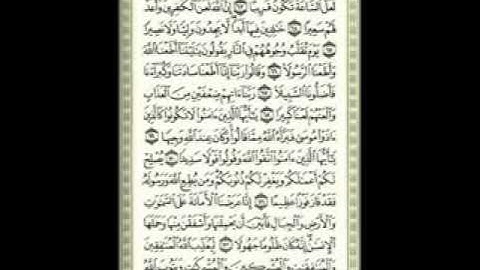 لَعَلَّ ٱلسَّاعَةَ تَكُونُ قَرِيبًا ٦٣ إِنَّ ٱللَّهَ لَعَنَ ٱلْكَٰفِرِينَ وَأَعَدَّ
لَهُمْ سَعِيرًا ٦٤ خَٰلِدِينَ فِيهَآ أَبَدًا لَّا يَجِدُونَ وَلِيًّا وَلَا نَصِيرًا
٦٥ يَوْمَ تُقَلَّبُ وُجُوهُهُمْ فِى ٱلنَّارِ يَقُولُونَ يَٰلَيْتَنَآ أَطَعْنَا ٱللَّهَ
وَأَطَعْنَا ٱلرَّسُولَا۠ ٦٦ وَقَالُوا۟ رَبَّنَآ إِنَّآ أَطَعْنَا سَادَتَنَا وَكُبَرَآءَنَا
فَأَضَلُّونَا ٱلسَّبِيلَا۠ ٦٧ رَبَّنَآ ءَاتِهِمْ ضِعْفَيْنِ مِنَ ٱلْعَذَابِ
وَٱلْعَنْهُمْ لَعْنًا كَبِيرًا ٦٨ يَٰٓأَيُّهَا ٱلَّذِينَ ءَامَنُوا۟ لَا تَكُونُوا۟ كَٱلَّذِينَ
ءَاذَوْا۟ مُوسَىٰ فَبَرَّأَهُ ٱللَّهُ مِمَّا قَالُوا۟ وَكَانَ عِندَ ٱللَّهِ وَجِيهًا ٦٩
يَٰٓأَيُّهَا ٱلَّذِينَ ءَامَنُوا۟ ٱتَّقُوا۟ ٱللَّهَ وَقُولُوا۟ قَوْلًا سَدِيدًا ٧٠ يُصْلِحْ
لَكُمْ أَعْمَٰلَكُمْ وَيَغْفِرْ لَكُمْ ذُنُوبَكُمْ وَمَن يُطِعِ ٱللَّهَ وَرَسُولَهُۥ
فَقَدْ فَازَ فَوْزًا عَظِيمًا ٧١ إِنَّا عَرَضْنَا ٱلْأَمَانَةَ عَلَى ٱلسَّمَٰوَٰتِ
وَٱلْأَرْضِ وَٱلْجِبَالِ فَأَبَيْنَ أَن يَحْمِلْنَهَا وَأَشْفَقْنَ مِنْهَا وَحَمَلَهَا
ٱلْإِنسَٰنُ إِنَّهُۥ كَانَ ظَلُومًا جَهُولًا ٧٢ لِّيُعَذِّبَ ٱللَّهُ ٱلْمُنَٰفِقِينَ
وَٱلْمُنَٰفِقَٰتِ وَٱلْمُشْرِكِينَ وَٱلْمُشْرِكَٰتِ وَيَتُوبَ ٱللَّهُ